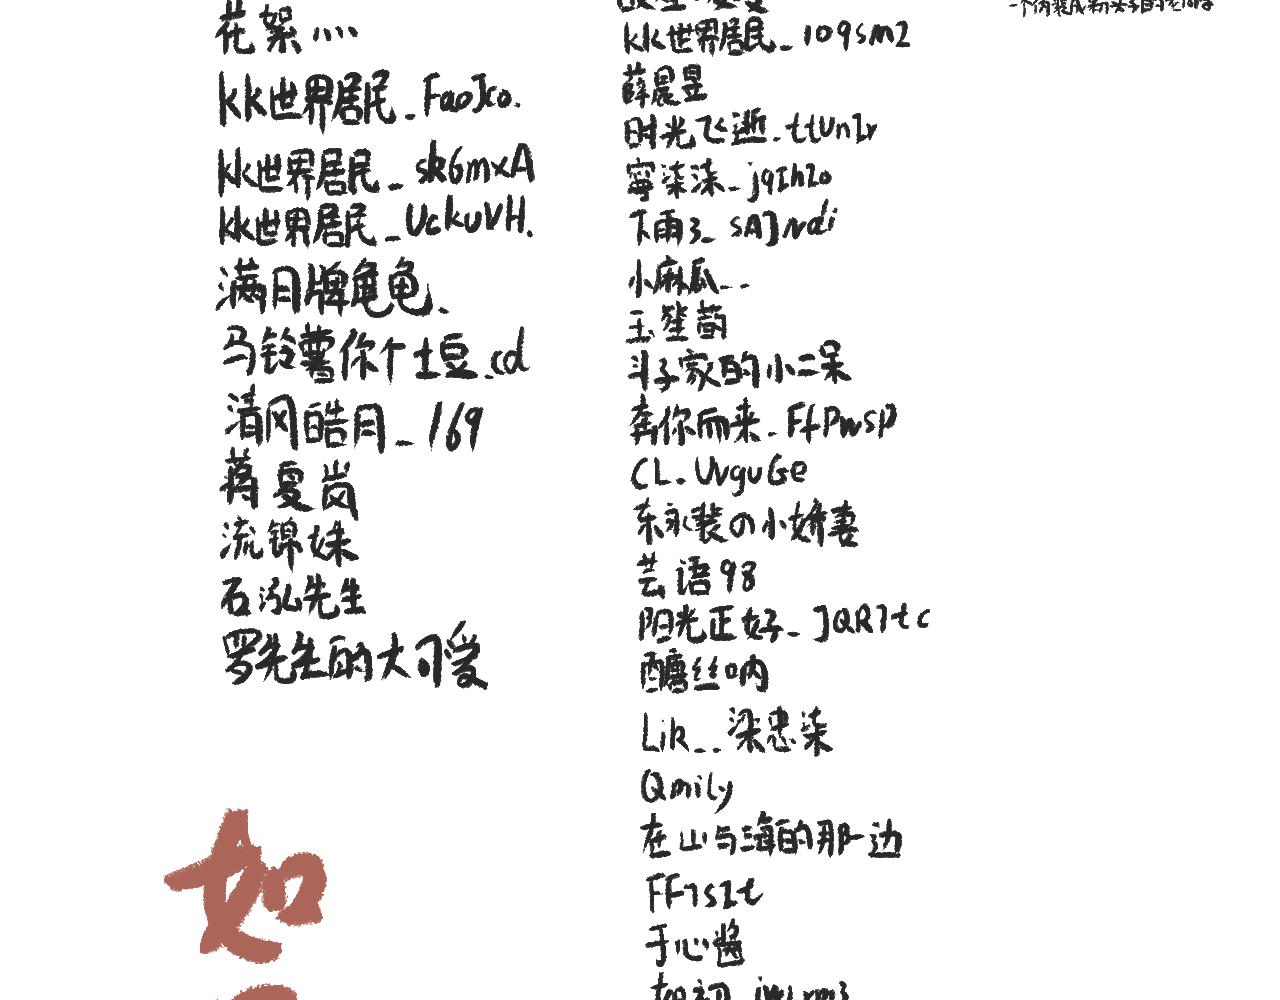 花絮
kk世界居民_FaoJco.
kk世界居民_sk6mxA
kk世界居民_UckuVH.
满月牌龟龟.
马铃薯你个土豆.cd
清风皓月_169
蒋夏岚
流锦妹
石泓先生
罗先生的大可爱
如
kk世界居民_109sm2
薛晨昱
时光飞逝.ttUnIr
寧柒柒_jqIh2o
下雨了_SAJrdi
小麻瓜..
玉笙蔄
斗子家的小二呆
奔你而来.FfPwsp
CL.UvguGe
东永裴の小娇妻
芸语98
阳光正好_JQR7tc
醺丝呐
Lik__梁忠柒
Qmily
在山与海的那一边
FF7sIt
于心酱